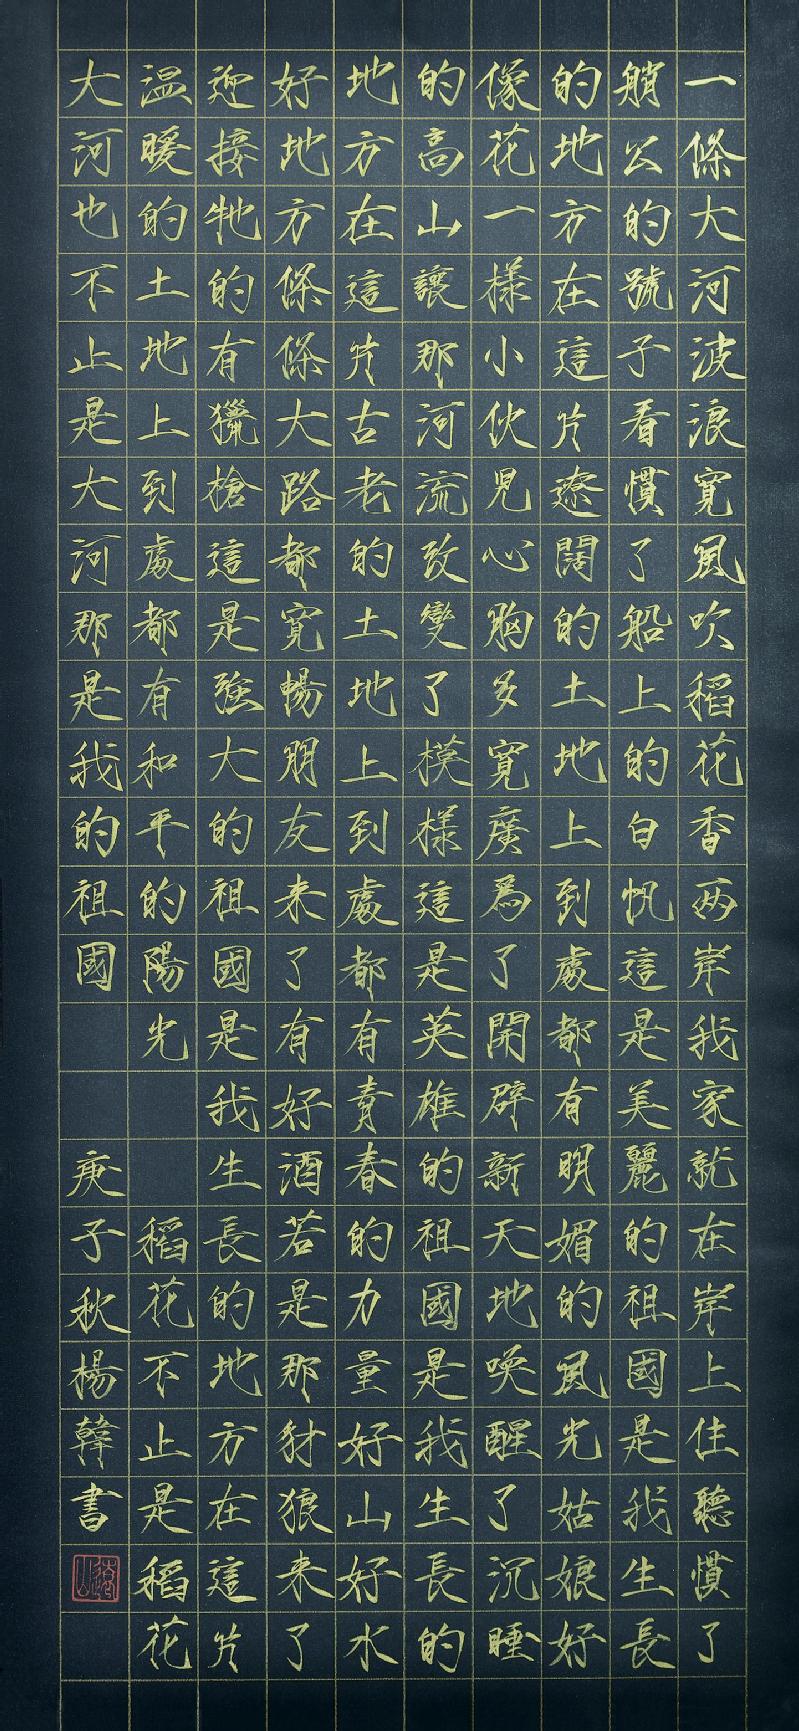 一條大河波浪寬風吹稻花香兩岸我家就在岸上住聽慣了
艄公的號子看慣了船上的白帆這是美麗的祖國是我生長
的地方在這片遼闊的土地上到處都有明媚的風光姑娘好
像花一樣小伙兒心胸多寬廣為了開辟新天地喚醒了沉睡
的高山讓那河流改變了模樣這是英雄的祖國是我生長的
地方在這片古老的土地上到處都有青春的力量好山好水
好地方條條大路都寬暢朋友来了有好酒若是那豺狼来了
迎接牠的有獵槍這是強大的祖國是我生長的地方在這片
溫暖的土地上到處都有和平的陽光 稻花不止是稻花
大河也不止是大河那是我的祖國 庚子秋楊韓書